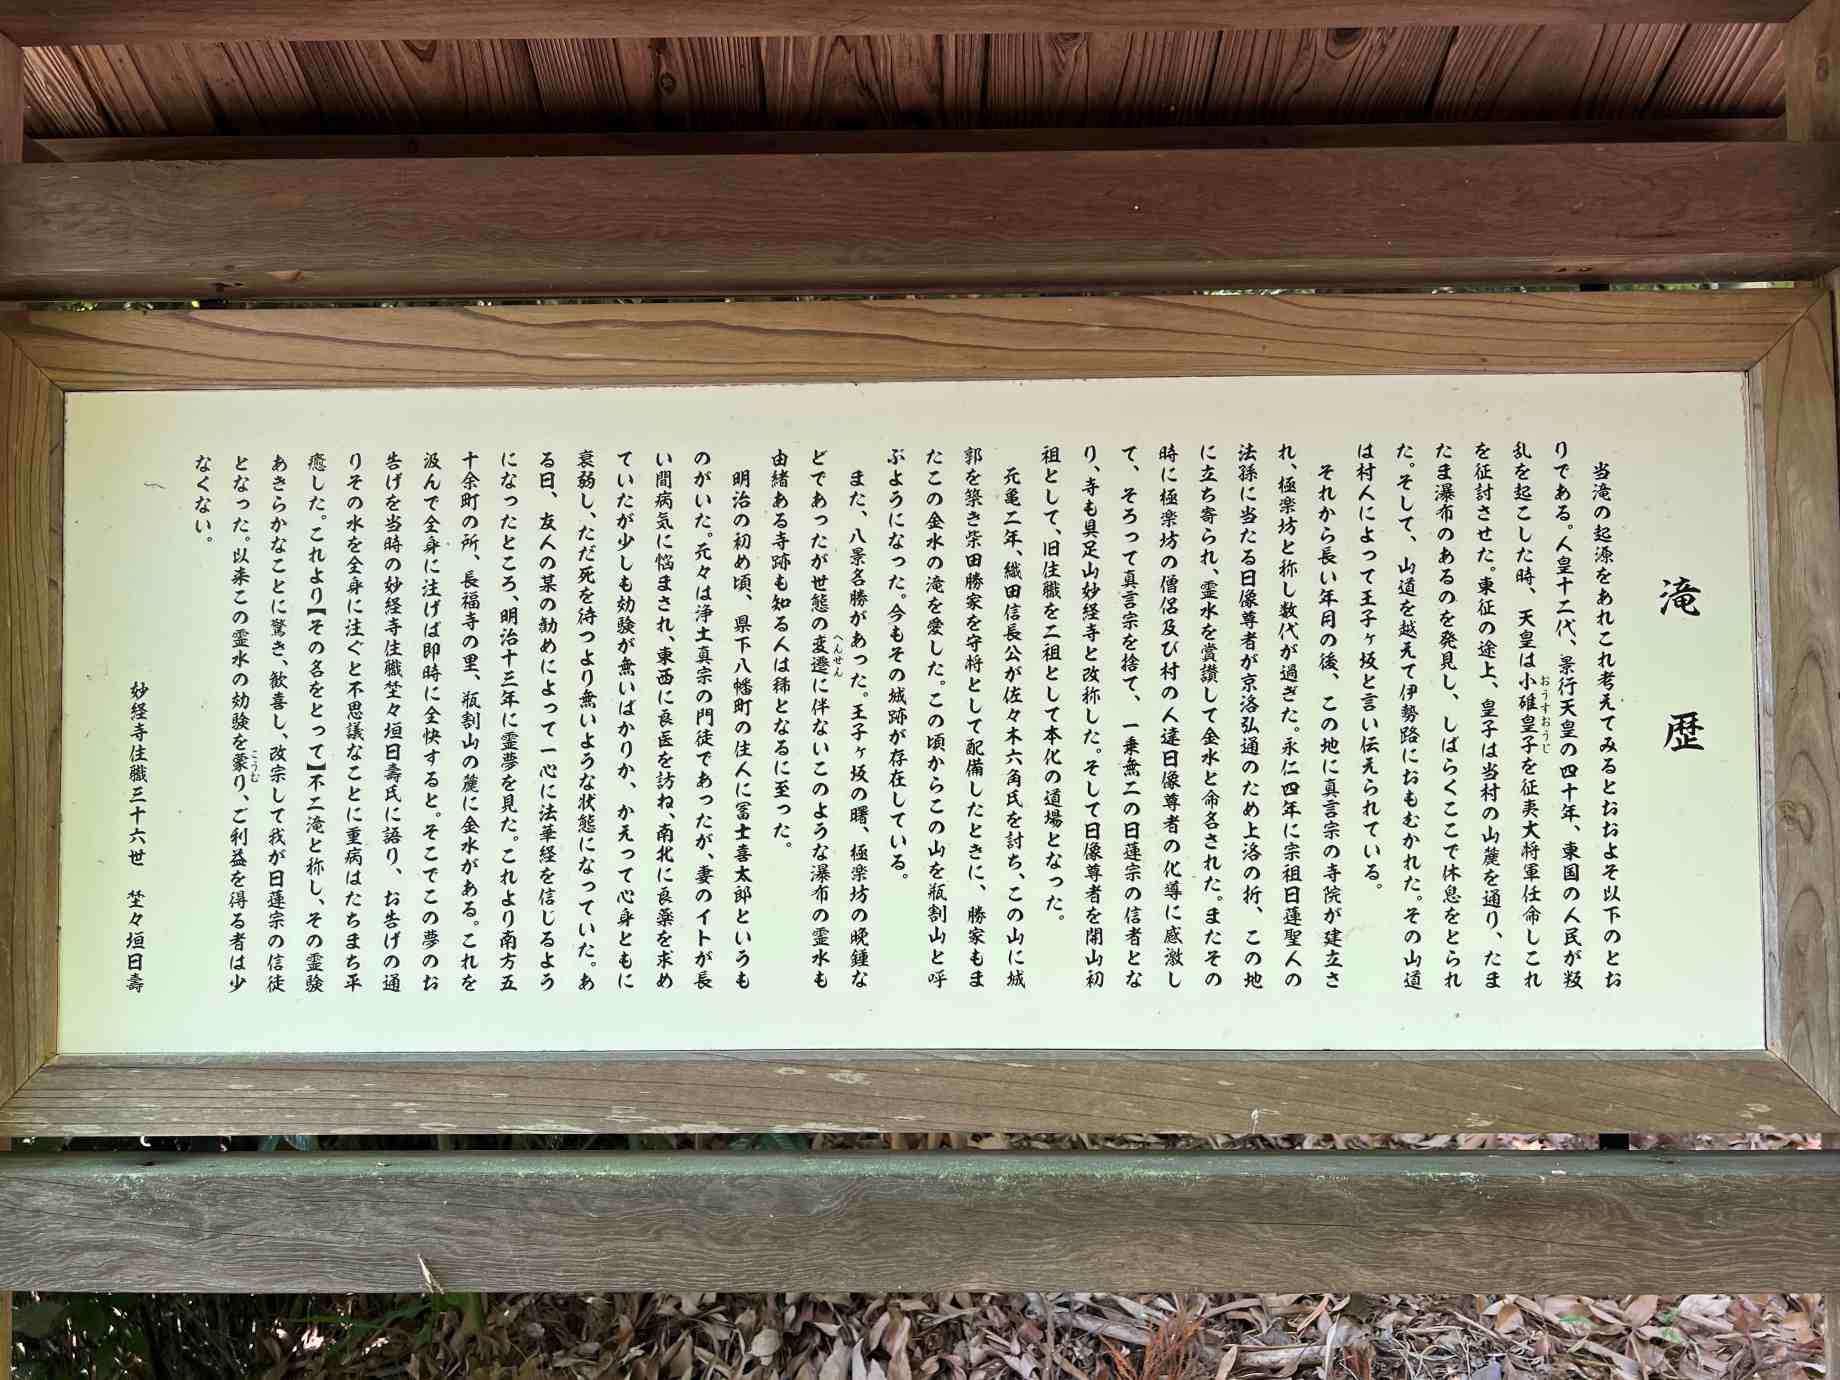 滝歴
当滝の起源をあれこれ考えてみるとおおよそ以下のとお
りである。人皇十二代、景行天皇の四十年、東国の人民が叛
乱を起こした時、天皇は小碓皇子を征夷大将軍任命しこれ
おうすおうじ
を征討させた。東征の途上、皇子は当村の山麓を通り、たま
たま瀑布のあるのを発見し、しばらくここで休息をとられ
た。そして、山道を越えて伊勢路におもむかれた。その山道
は村人によって王子ヶ坂と言い伝えられている。
それから長い年月の後、この地に真言宗の寺院が建立さ
れ、極楽坊と称し数代が過ぎた。永仁四年に宗祖日蓮聖人の
法孫に当たる日像尊者が京洛弘通のため上洛の折、この地
に立ち寄られ、霊水を賞讃して金水と命名された。またその
時に極楽坊の僧侶及び村の人達日像尊者の化導に感激し
て、そろって真言宗を捨て、一乗無二の日蓮宗の信者とな
り、寺も具足山妙経寺と改称した。そして日像尊者を開山初
祖として、旧住職を二祖として本化の道場となった。
元亀二年、織田信長公が佐々木六角氏を討ち、この山に城
郭を築き柴田勝家を守将として配備したときに、勝家もま
たこの金水の滝を愛した。この頃からこの山を瓶割山と呼
ぶようになった。今もその城跡が存在している。
また、八景名勝があった。王子ヶ坂の曙、極楽坊の晩鐘な
どであったが世態の変遷に伴ないこのような瀑布の霊水も
へんせん
由緒ある寺跡も知る人は稀となるに至った。
明治の初め頃、県下八幡町の住人に冨士喜太郎というも
のがいた。元々は浄土真宗の門徒であったが、妻のイトが長
い間病気に悩まされ、東西に良医を訪ね、南北に良薬を求め
ていたが少しも効験が無いばかりか、かえって心身ともに
衰弱し、ただ死を待つより無いような状態になっていた。あ
る日、友人の某の勧めによって一心に法華経を信じるよう
になったところ、明治十三年に霊夢を見た。これより南方五
十余町の所、長福寺の里、瓶割山の麓に金水がある。これを
汲んで全身に注げば即時に全快すると。そこでこの夢のお
告げを当時の妙経寺住職埜々垣日壽氏に語り、お告げの通
りその水を全身に注ぐと不思議なことに重病はたちまち平
癒した。これより【その名をとって】不二滝と称し、その霊験
あきらかなことに驚き、歓喜し、改宗して我が日蓮宗の信徒
となった。以来この霊水の効験を蒙り、ご利益を得る者は少
こうむ
なくない。
妙経寺住職三十六世 埜々垣日壽